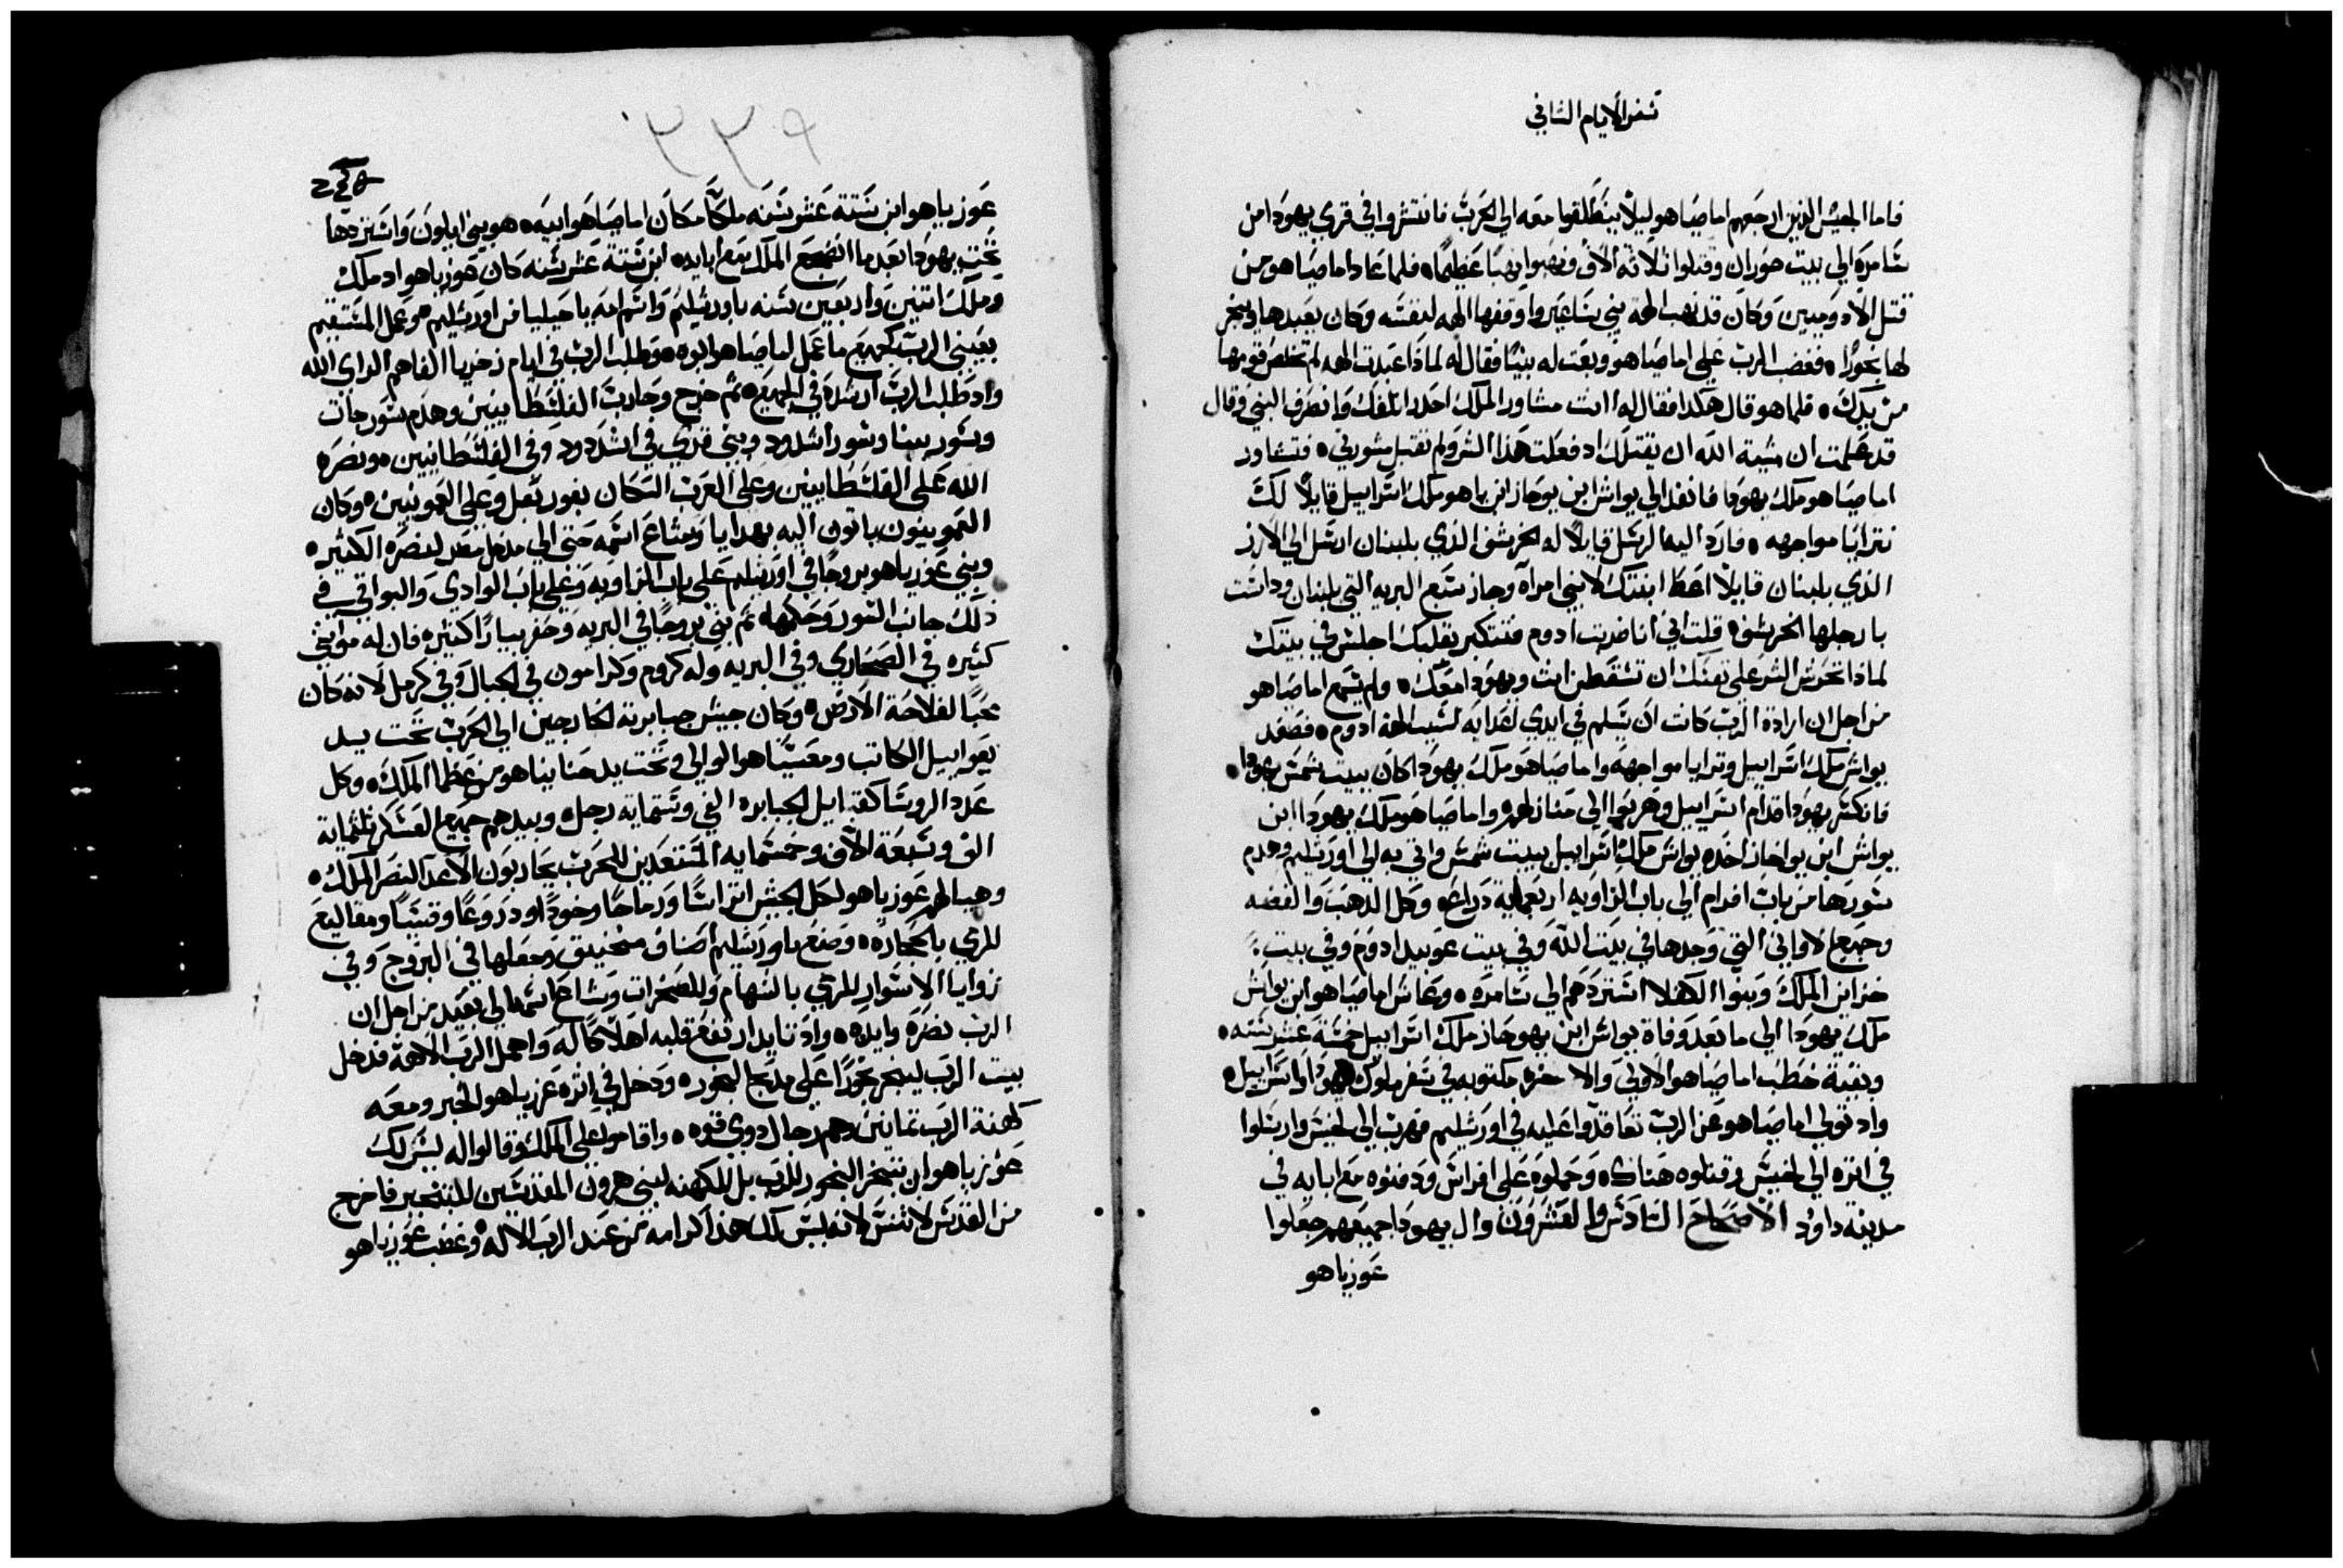 سفر الايام الثاني
فاما الجيش الذين ارجعهم اماصياهو ليلا ينطلقوا معه الي الحرب فانتشروا في قري يهودا من
سامره الي بيت حوران وقتلوا ثلاثه الاف ونهبوا نهبا عظيما فلما عاد اماصياهو من
قتل الادوميين وكان قد نهب الهة بني ساعير واوقفها الهه لنفسه وكان يعبدها ويبخر
لها بخورا فغضب الرب علي اماصياهو وبعت له نبيا فقال له لماذا عبدت الهه لم تخلص قومها
من يدك فلما هو قال هكدا فقال له انت مشاور الملك احدر اتلفك وانصرف النبي وقال
قد علمت ان مشية الله ان يقتلك اد فعلت هذا الشر ولم تقبل مشورتي فتشاور
اماصياهو ملك يهودا فانفد الي يواش ابن يوحاز ابن ياهو ملك اسراييل قايلا لك
نترايا مواجهه فارد اليه الرسل قايلا له الخرشف الذي بلبنان ارسل الي الارز
الذي بلبنان قايلا اعط ابنتك لابني امراه وجاز سبع البريه التي بلبنان وداست
بارجلها الخرشف قلت اني انا ضربت ادوم فتتكبر بقلبك اجلس في بيتك
لماذا تحوش الشر علي نفسك ان تسقط انت ويهودا معك ولم يسمع اماصياهو
من اجل ان ارادة الرب كانت ان يسلم في ايدي اعدايه لسبب الهة ادوم فصعد
يواش ملك اسراييل وترايا مواجهه واماصياهو ملك يهودا كان ببيت شمس يهودا
فانكسر يهودا قدام اسراييل وهربوا الي منازلهم واماصياهو ملك يهودا ابن
يواش ابن يواحاز اخده يواش ملك اسراييل ببيت شمس واتي به الي اورشليم وهدم
سورها من باب افرام الي باب الزاويه اربعمايه دراع وكل الدهب والفضه
وجميع الاواني التي وجدها في بيت الله وفي بيت عوبيد ادوم وفي بيت
خزاين الملك وبنوا الكفلا استردهم الي سامره وعاش اماصياهو ابن يواش
ملك يهودا الي ما بعد وفاة يواش ابن يهوحاز ملك اسراييل خمسة عشر سنه
وبقية خطب اماصياهو الاولي والاخره مكتوبه في سفر ملوك يهودا واسراييل
واد تولي اماصياهو عن الرب تعاقدوا عليه في اورشليم فهرب الي لخيش وارسلوا
في اتره الي لخيش وقتلوه هناك وحملوه علي افراس ودفنوه مع ابايه في
مدينة داود الاصحاح السادس والعشرون وال يهودا جميعهم جعلوا
عوزياهو
٣٣٩
عوزياهو ابن ستة عشر سنه ملكا مكان اماصياهو ابيه هو بني ايلون واستردها
تحت يهودا بعد ما اضجع الملك مع ابايه ابن ستة عشر سنه كان عوزياهو اد ملك
وملك اتنين واربعين سنه باورشليم واسم امه ياحيليا من اورشليم وعمل المستقيم
بعيني الرب كجميع ما عمل اماصياهو ابوه وطلب الرب في ايام زخريا الفاهم الراي الله
واد طلب الرب ارشده في الجميع تم خرج وحارب الفلسطانيين وهدم سور جات
وسور يبنا وسور اشدود وبني قري في اشدود وفي الفلسطانيين ونصره
الله علي الفلسطانيين وعلي العرب السكان بغور بعل وعلي العمونيين وكان
العمونيون ياتون اليه بهدايا وشاع اسمه حتي الي مدخل مصر لنصره الكتيره
وبني عوزياهو بروجا في اورشليم علي باب الزاويه وعلي باب الوادي والبواقي في
دلك جانب السور وحكمها تم بني بروجا في البريه وحفر بيارا كتيره فان له مواشي
كتيره في الصحاري وفي البريه وله كروم وكرامون في الجبال وفي كرمل لانه كان
محبا لفلاحة الارض وكان جيش جبابرته الخارجين الي الحرب تحت يد
يعواييل الكاتب ومعسياهو الوالي وتحت يد حنانياهو من عظما الملك وكل
عدد الروسا كقبايل الجبابره الفي وستمايه رجل وبيدهم جميع العسكر تلتماية
الف وسبعة الاف وخمسمايه المستعدين للحرب يحاربون الاعدا لنصر الملك
وهيا لهم عوزياهو لكل الجيش اتراسا ورماحا وخودا ودروعا وقسيا ومقاليع
للرمي بالحجاره وصنع باورشليم اصناف منجنيق وجعلها في البروج وفي
زوايا الاسوار للرمي بالسهام وللصخرات وشاع اسمه الي بعيد من اجل ان
الرب نصره وايده واد تايد ارتفع قلبه اهلاكا له واهمل الرب الاهه فدخل
بيت الرب ليبخر بخورا علي مدبح البخور ودخل في اتره عزرياهو الحبر ومعه
كهنة الرب تمانين وهم رجال دوي قوه واقاموا علي الملك وقالوا له ليس لك
عوزياهو ان تبخر البخور للرب بل للكهنه لبني هرون المقدسين للتبخير فاخرج
من القدس لا تنس لانه ليس لك هذا كرامه من عند الرب الاله وغضب عوزياهو